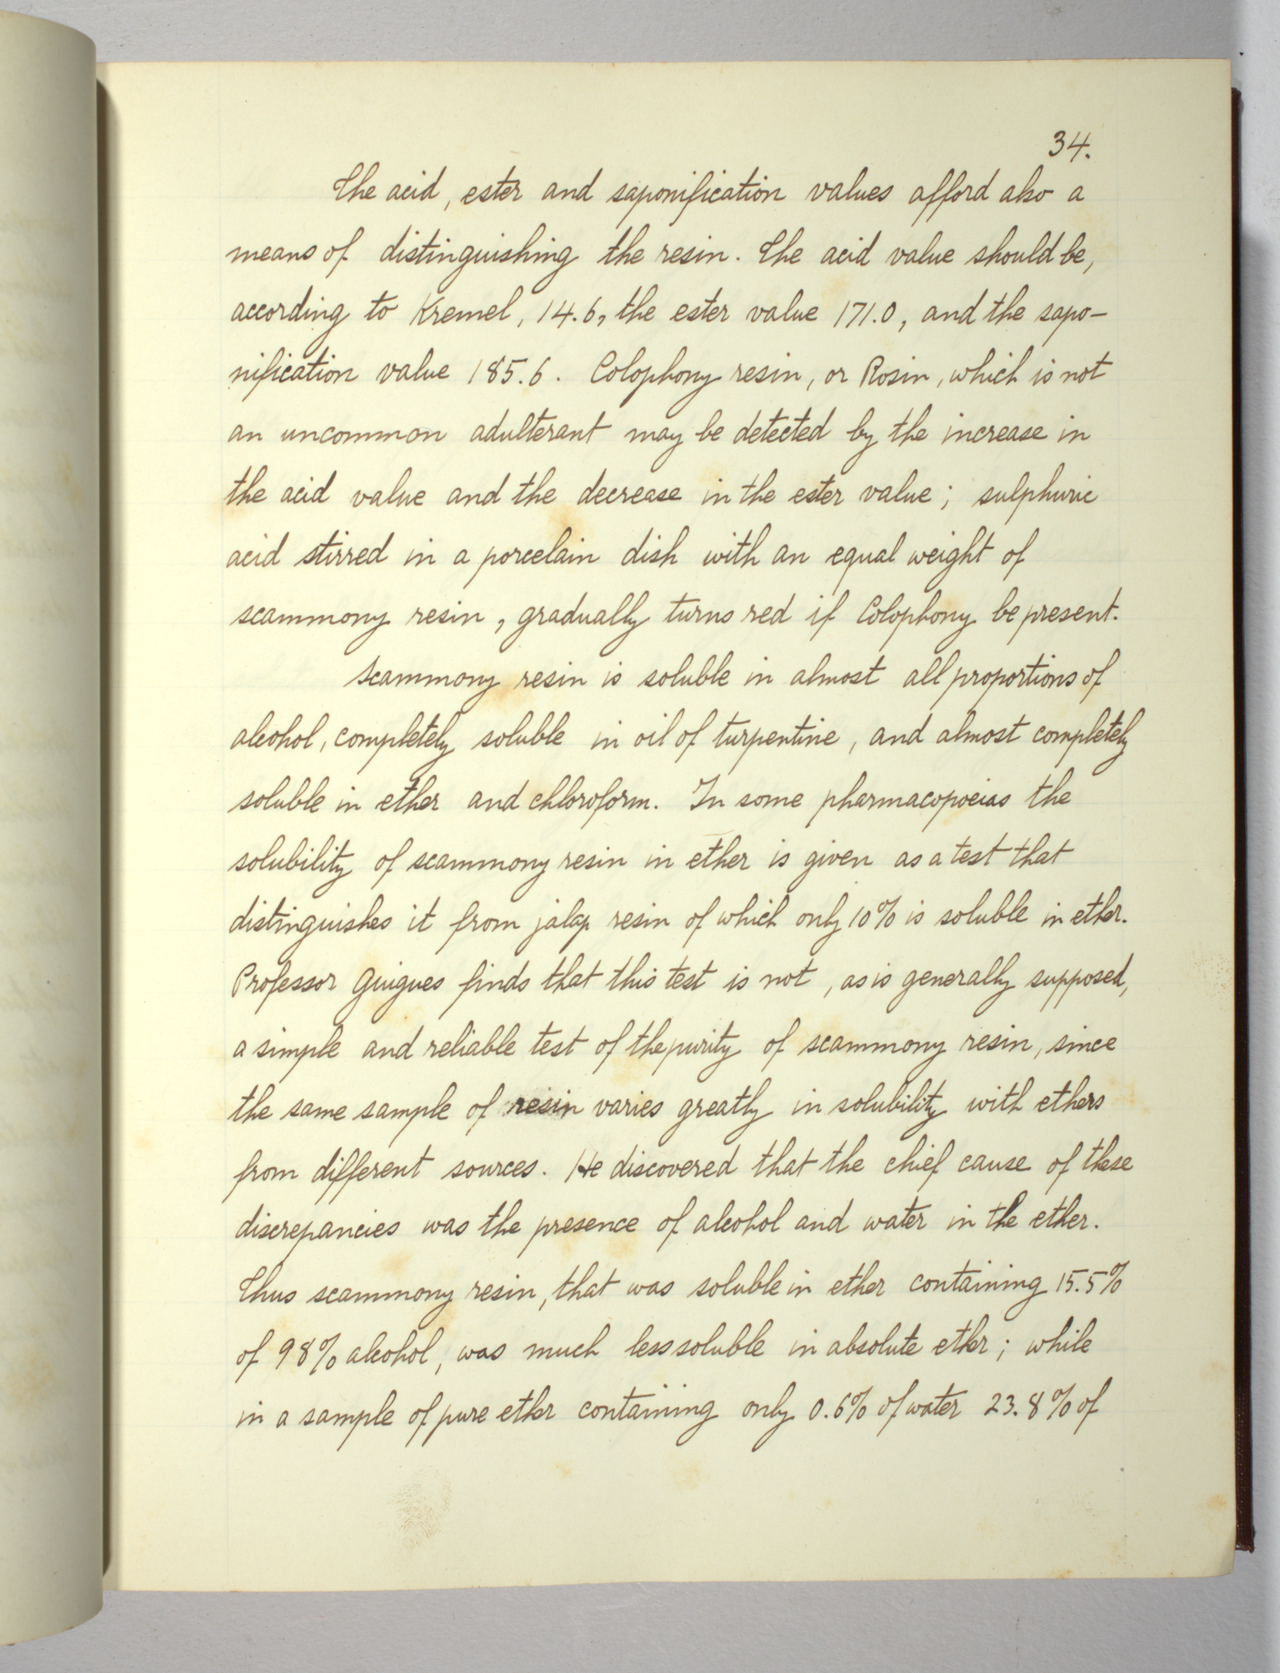 34.
The acid, ester and saponification values afford also a
means of distinguishing the resin. The acid value should be,
according to Kremel, 14.6, the ester value 171.0, and the sapo-
nification value 185.6. Colophony resin, or Rosin, which is not
an uncommon adulterant may be detected by the increase in
the acid value and the decrease in the ester value; sulphuric
acid stirred in a porcelain dish with an equal weight of
scammony resin, gradually turns red if Colophony be present.
Scammony resin is soluble in almost all proportions of
alcohol, completely soluble in oil of turpentine, and almost completely
soluble in ether and chloroform. In some pharmacopoeias the
solubility of scammony resin in ether is given as a test that
distinguishes it from jalap resin of which only 10% is soluble in ether.
Professor Guigues finds that this test is not, as is generally supposed,
a simple and reliable test of the purity of scammony resin, since
the same sample of resin varies greatly in solubility with ethers
from different sources. He discovered that the chief cause of these
discrepancies was the presence of alcohol and water in the ether.
Thus scammony resin, that was soluble in ether containing 15.5%
of 98% alcohol, was much less soluble in absolute ether; while
in a sample of pure ether containing only 0.6% of water 23.8% of